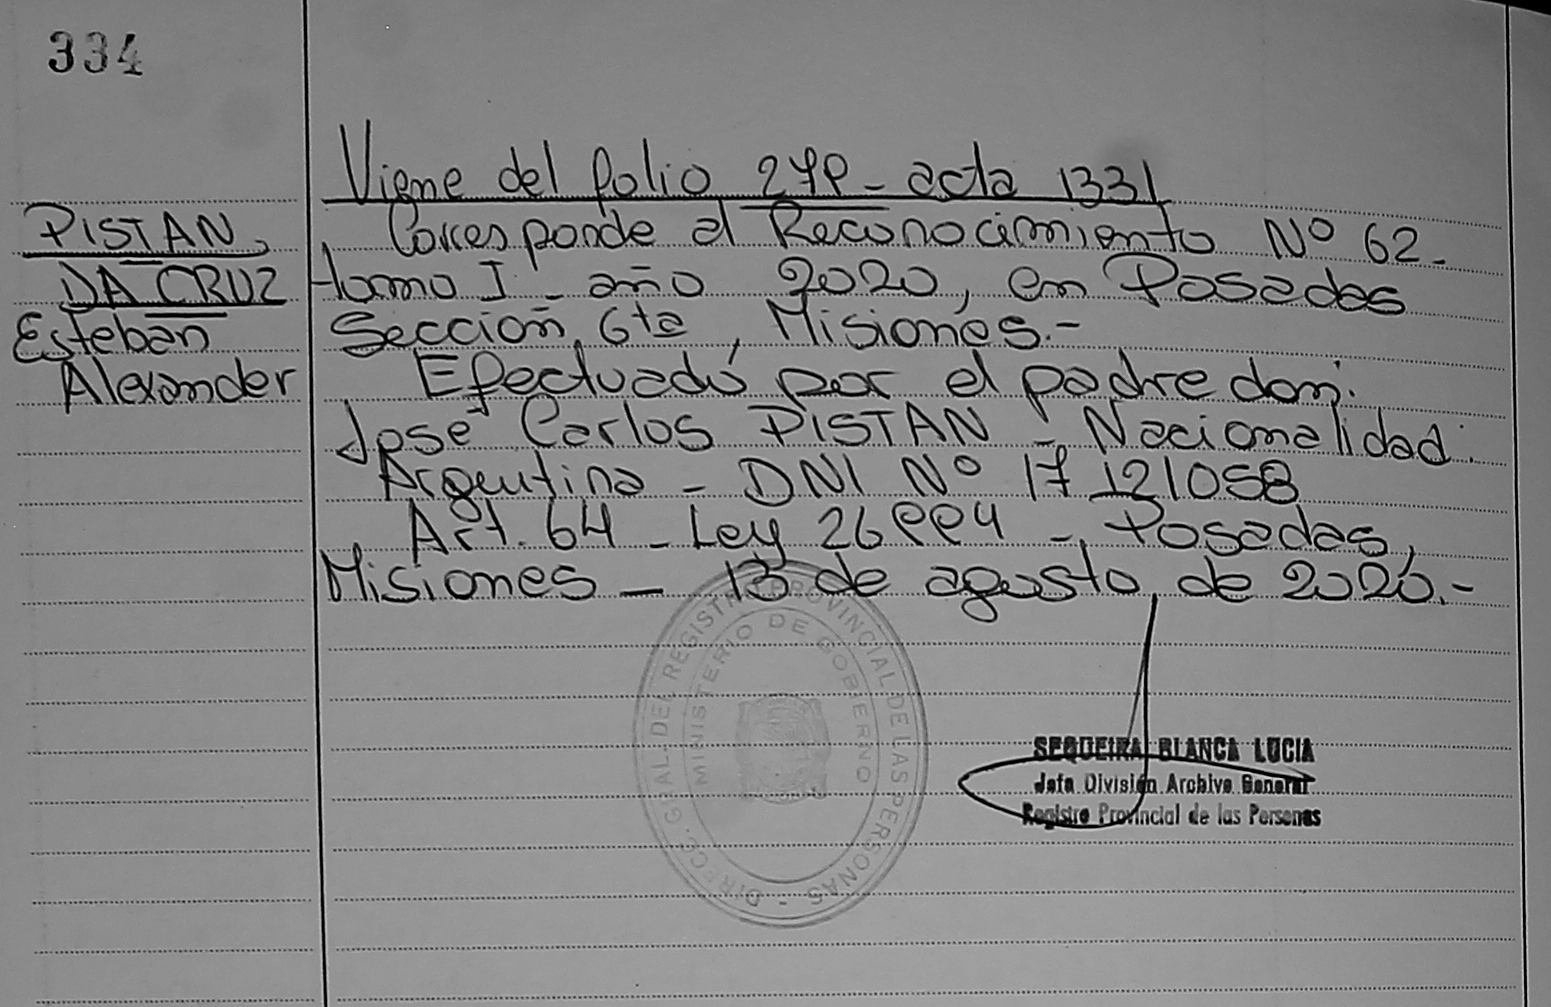 334
Viene del folio 279 - acta 1331
PISTAN,
Corresponde al Reconocimiento Nº 62 -
DA CRUZ
tomo I - año 2020, en Posadas
Esteban
Sección 6ta, Misiones.-
Alexander
Efectuado por el padre don:
José Carlos PISTAN - Nacionalidad:
Argentina - DNI Nº 17 121058
Art. 64 - Ley 26994 - Posadas,
Misiones - 13 de agosto de 2020.-
DIRECC. GRAL. DEL REGISTRO PROVINCIAL DE LAS PERSONAS -
MINISTERIO DE GOBIERNO
SEQUEIRA BLANCA LUCIA
Jefa División Archivo General
Registro Provincial de las Personas